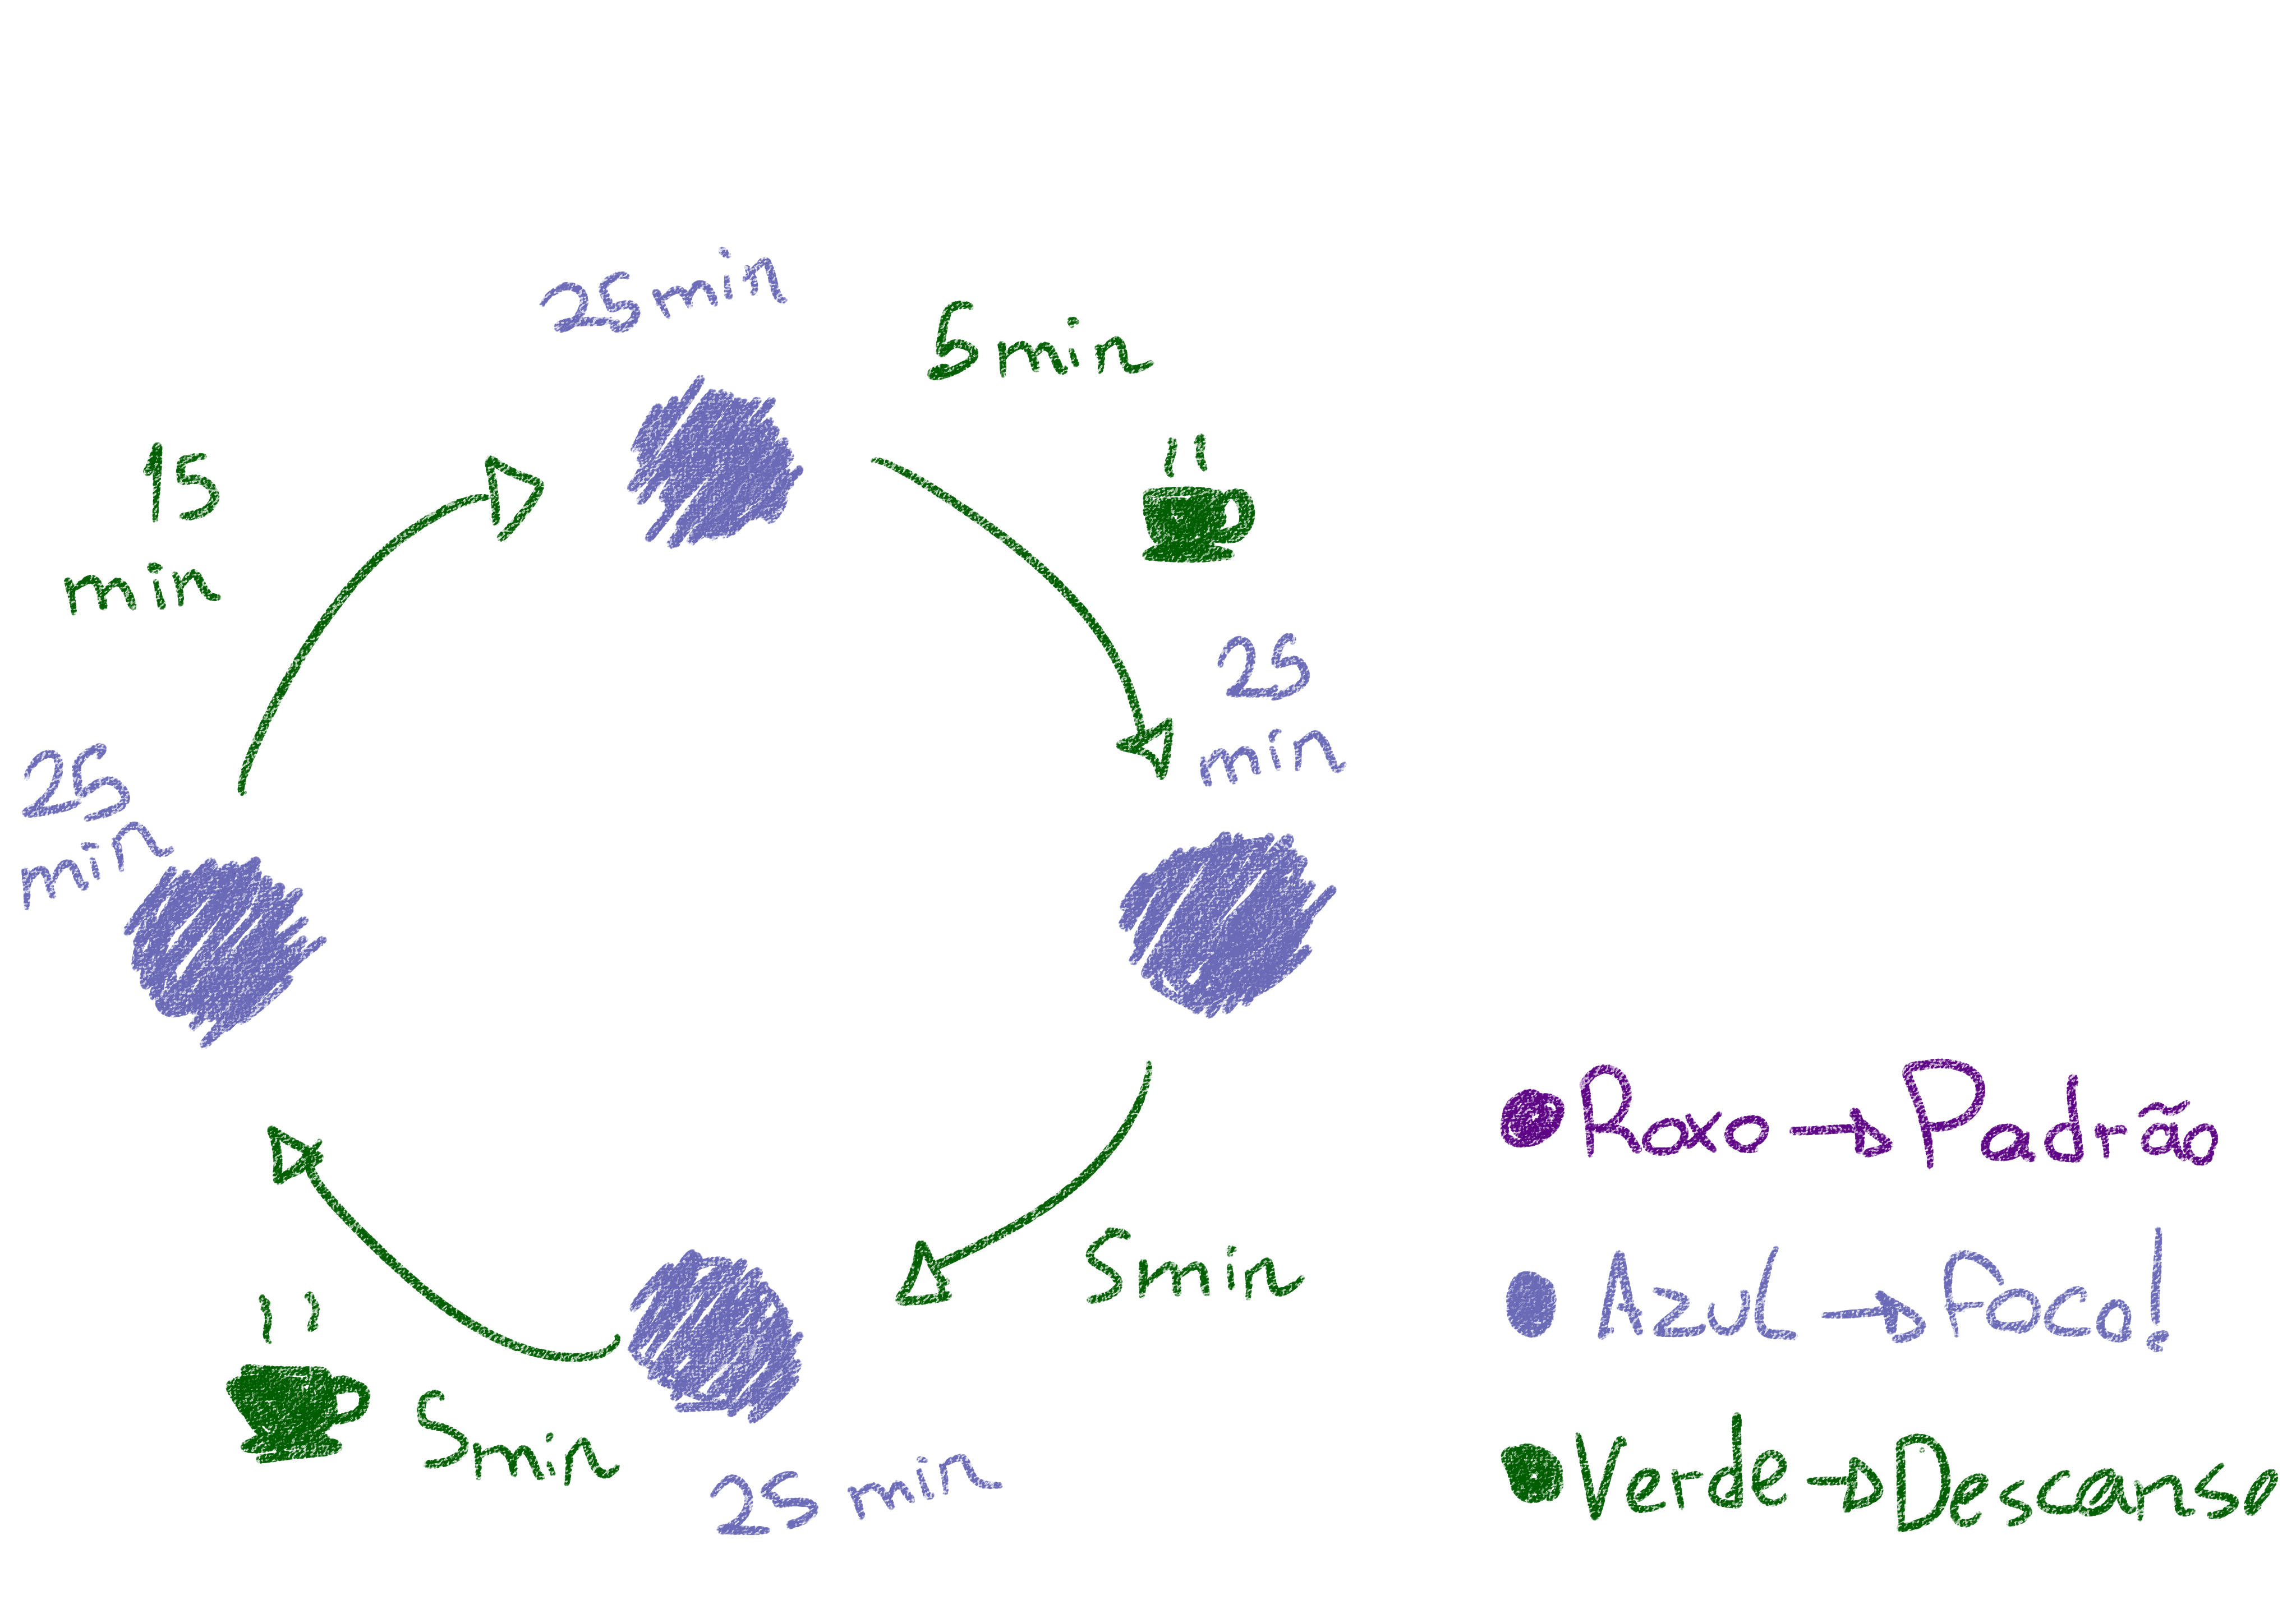 25 min
5 min
15
min
25
min
25
min
5 min
5 min
25 min
Roxo → Padrão
Azul → Foco!
Verde → Descanso